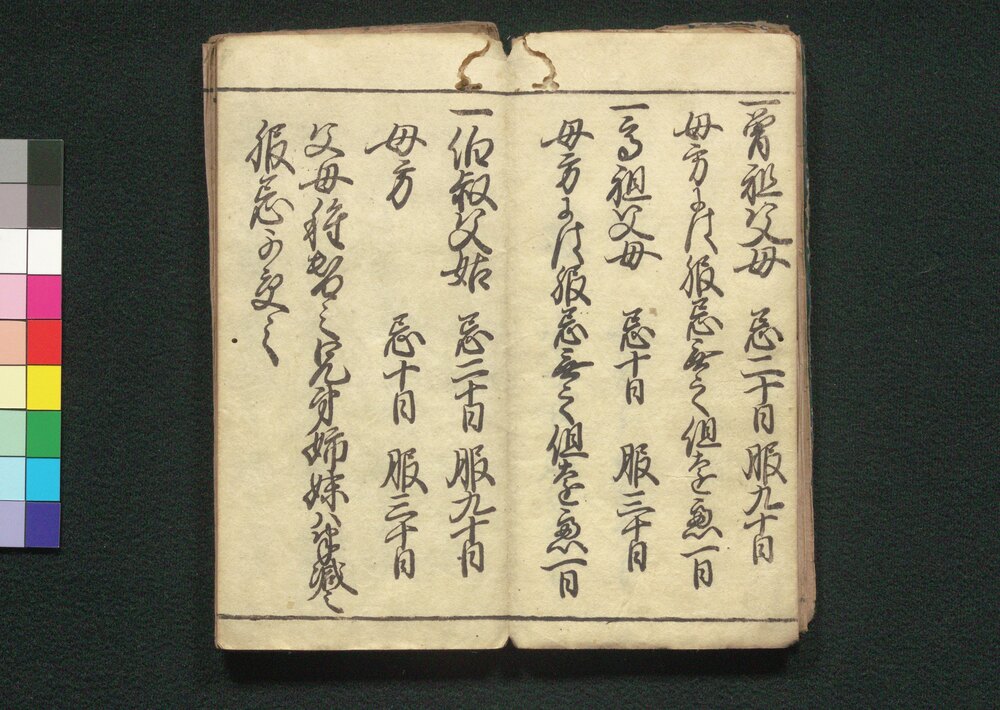 一曽祖父母 忌二十日服九十日
母方には服忌無之但遠慮一日
一高祖父母 忌十日 服三十日
母方には服忌無之但遠慮一日
一伯叔父姑 忌二十日服九十日
母方 忌十日 服三十日
父母種替之兄弟姉妹ハ半減之
服忌可受之